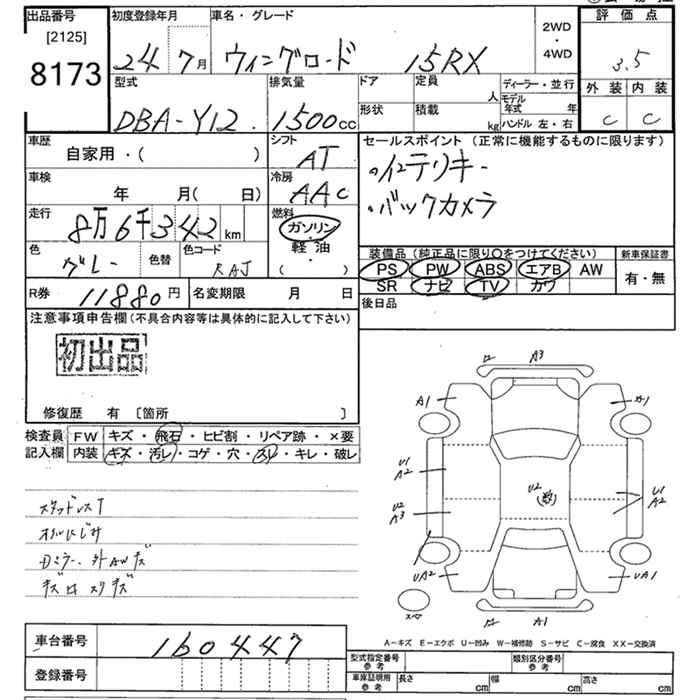 出品番号
[2125]
8173
初度登録年月
24年 7月
車名・グレード
ウィングロード 15RX
2WD
・
4WD
評価点
3.5
外装 内装
C C
型式
DBA-Y12
排気量
1500cc
ドア
定員
人
形状
積載
kg
ディーラー・並行
モデル年式 年
ハンドル 左・右
車歴
自家用・( )
シフト
AT
セールスポイント (正常に機能するものに限ります)
・インテリキー
・バックカメラ
車検
年 月( 日)
冷房
AAC
走行
8万6千342km
燃料
ガソリン
軽油
・
( )
色
グレー
色替
色コード
KAJ
装備品(純正品に限り○をつけてください)
PS PW ABS エアB AW
SR ナビ TV カワ
新車保証書
有・無
R券 11880円
名変期限 月 日
後日品
注意事項申告欄(不具合内容等は具体的に記入して下さい)
初出品
修復歴 有 〔箇所 〕
検査員記入欄
FW キズ・飛石・ヒビ割・リペア跡・×要
内装 キズ・汚レ・コゲ・穴・スレ・キレ・破レ
スタッドレスT
オイルにじみ
Dミラー、外AWキズ
キズ 凹 スリキズ
A3
A1
A1
U1
A2
U2
U1
A2
U2
A3
UA2
UA1
A1
A-キズ E-エクボ U-凹み W-補修跡 S-サビ C-腐食 XX-交換済
車台番号 160447
登録番号
型式指定番号
参考
類別区分番号
参考
車庫証明用
参考
長さ cm
幅 cm
高さ cm